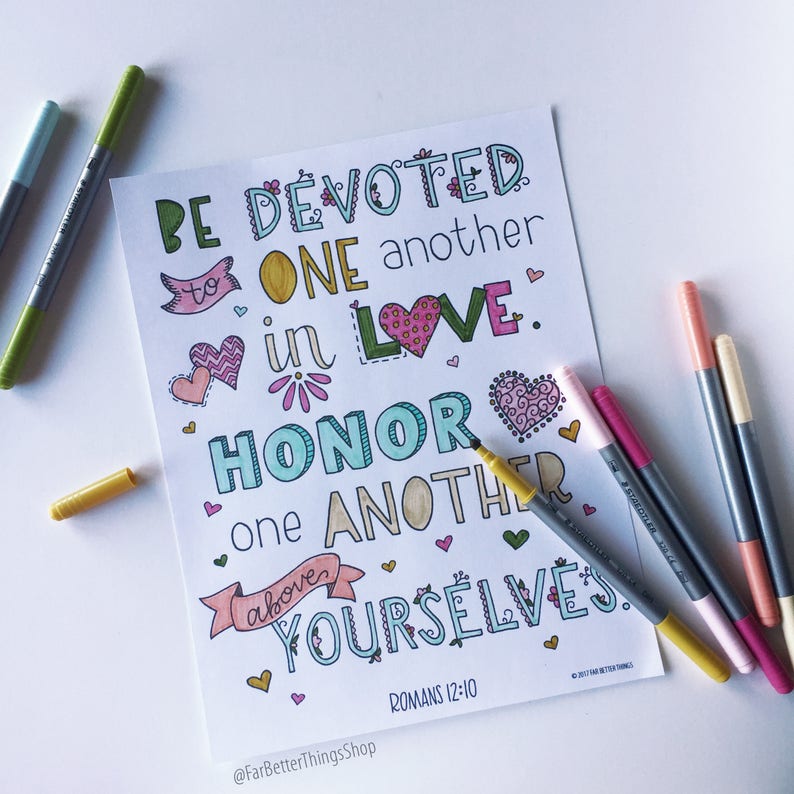 BE DEVOTED
to ONE another
in LOVE.
HONOR
one ANOTHER
above
YOURSELVES.
© 2017 FAR BETTER THINGS
ROMANS 12:10
@FarBetterThingsShop
STAEDTLER
STAEDTLER